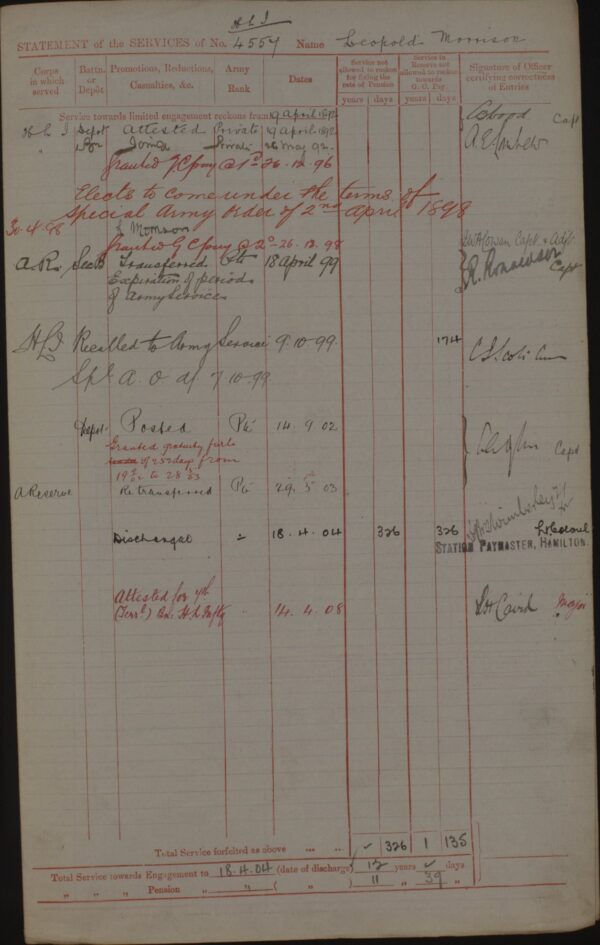 H L I
STATEMENT of the SERVICES of No. 4557 Name Leopold Morrison
Corps in which served
Battn. or Depôt
Promotions, Reductions, Casualties, &c.
Army Rank
Dates
Service not allowed to reckon for fixing the rate of Pension
Service in Reserve not allowed to reckon towards G. C. Pay.
Signature of Officer certifying correctness of Entries
years days years days
Service towards limited engagement reckons from 19 April 1892
H L I Depôt Attested Private 19 April 1892 Capt
" Joined Private 26 May 92.
Granted G C pay @ 1d 26. 12. 96
Elects to come under the terms of
Special Army Order of 2nd April 1898
30.4.98 L Morrison
Granted G C pay @ 2d 26. 12. 98 Capt & Adjt
A.R. Sec B Transferred Pte 18 April 99 Capt
Expiration of period
of Army Service
H L I Recalled to Army Service 9. 10. 99. 174
Spl A. O. d/ 7 10 99
Depot Posted Pte 14. 9. 02 Capt
Granted gratuity furlo
of 252 days from
A Reserve Re transferred Pte 29. 5 03
Discharged " 18. 4. 04 326 326 Lt Colonel
STATION PAYMASTER, HAMILTON.
Attested for
(Terrl) Bn. H. L. Infty " 14. 4. 08 Major
Total Service forfeited as above ... ... 326 1 135
Total Service towards Engagement to 18.4.04 (date of discharge) 12 years days
" " " Pension " " ( " ) 11 " 39 "